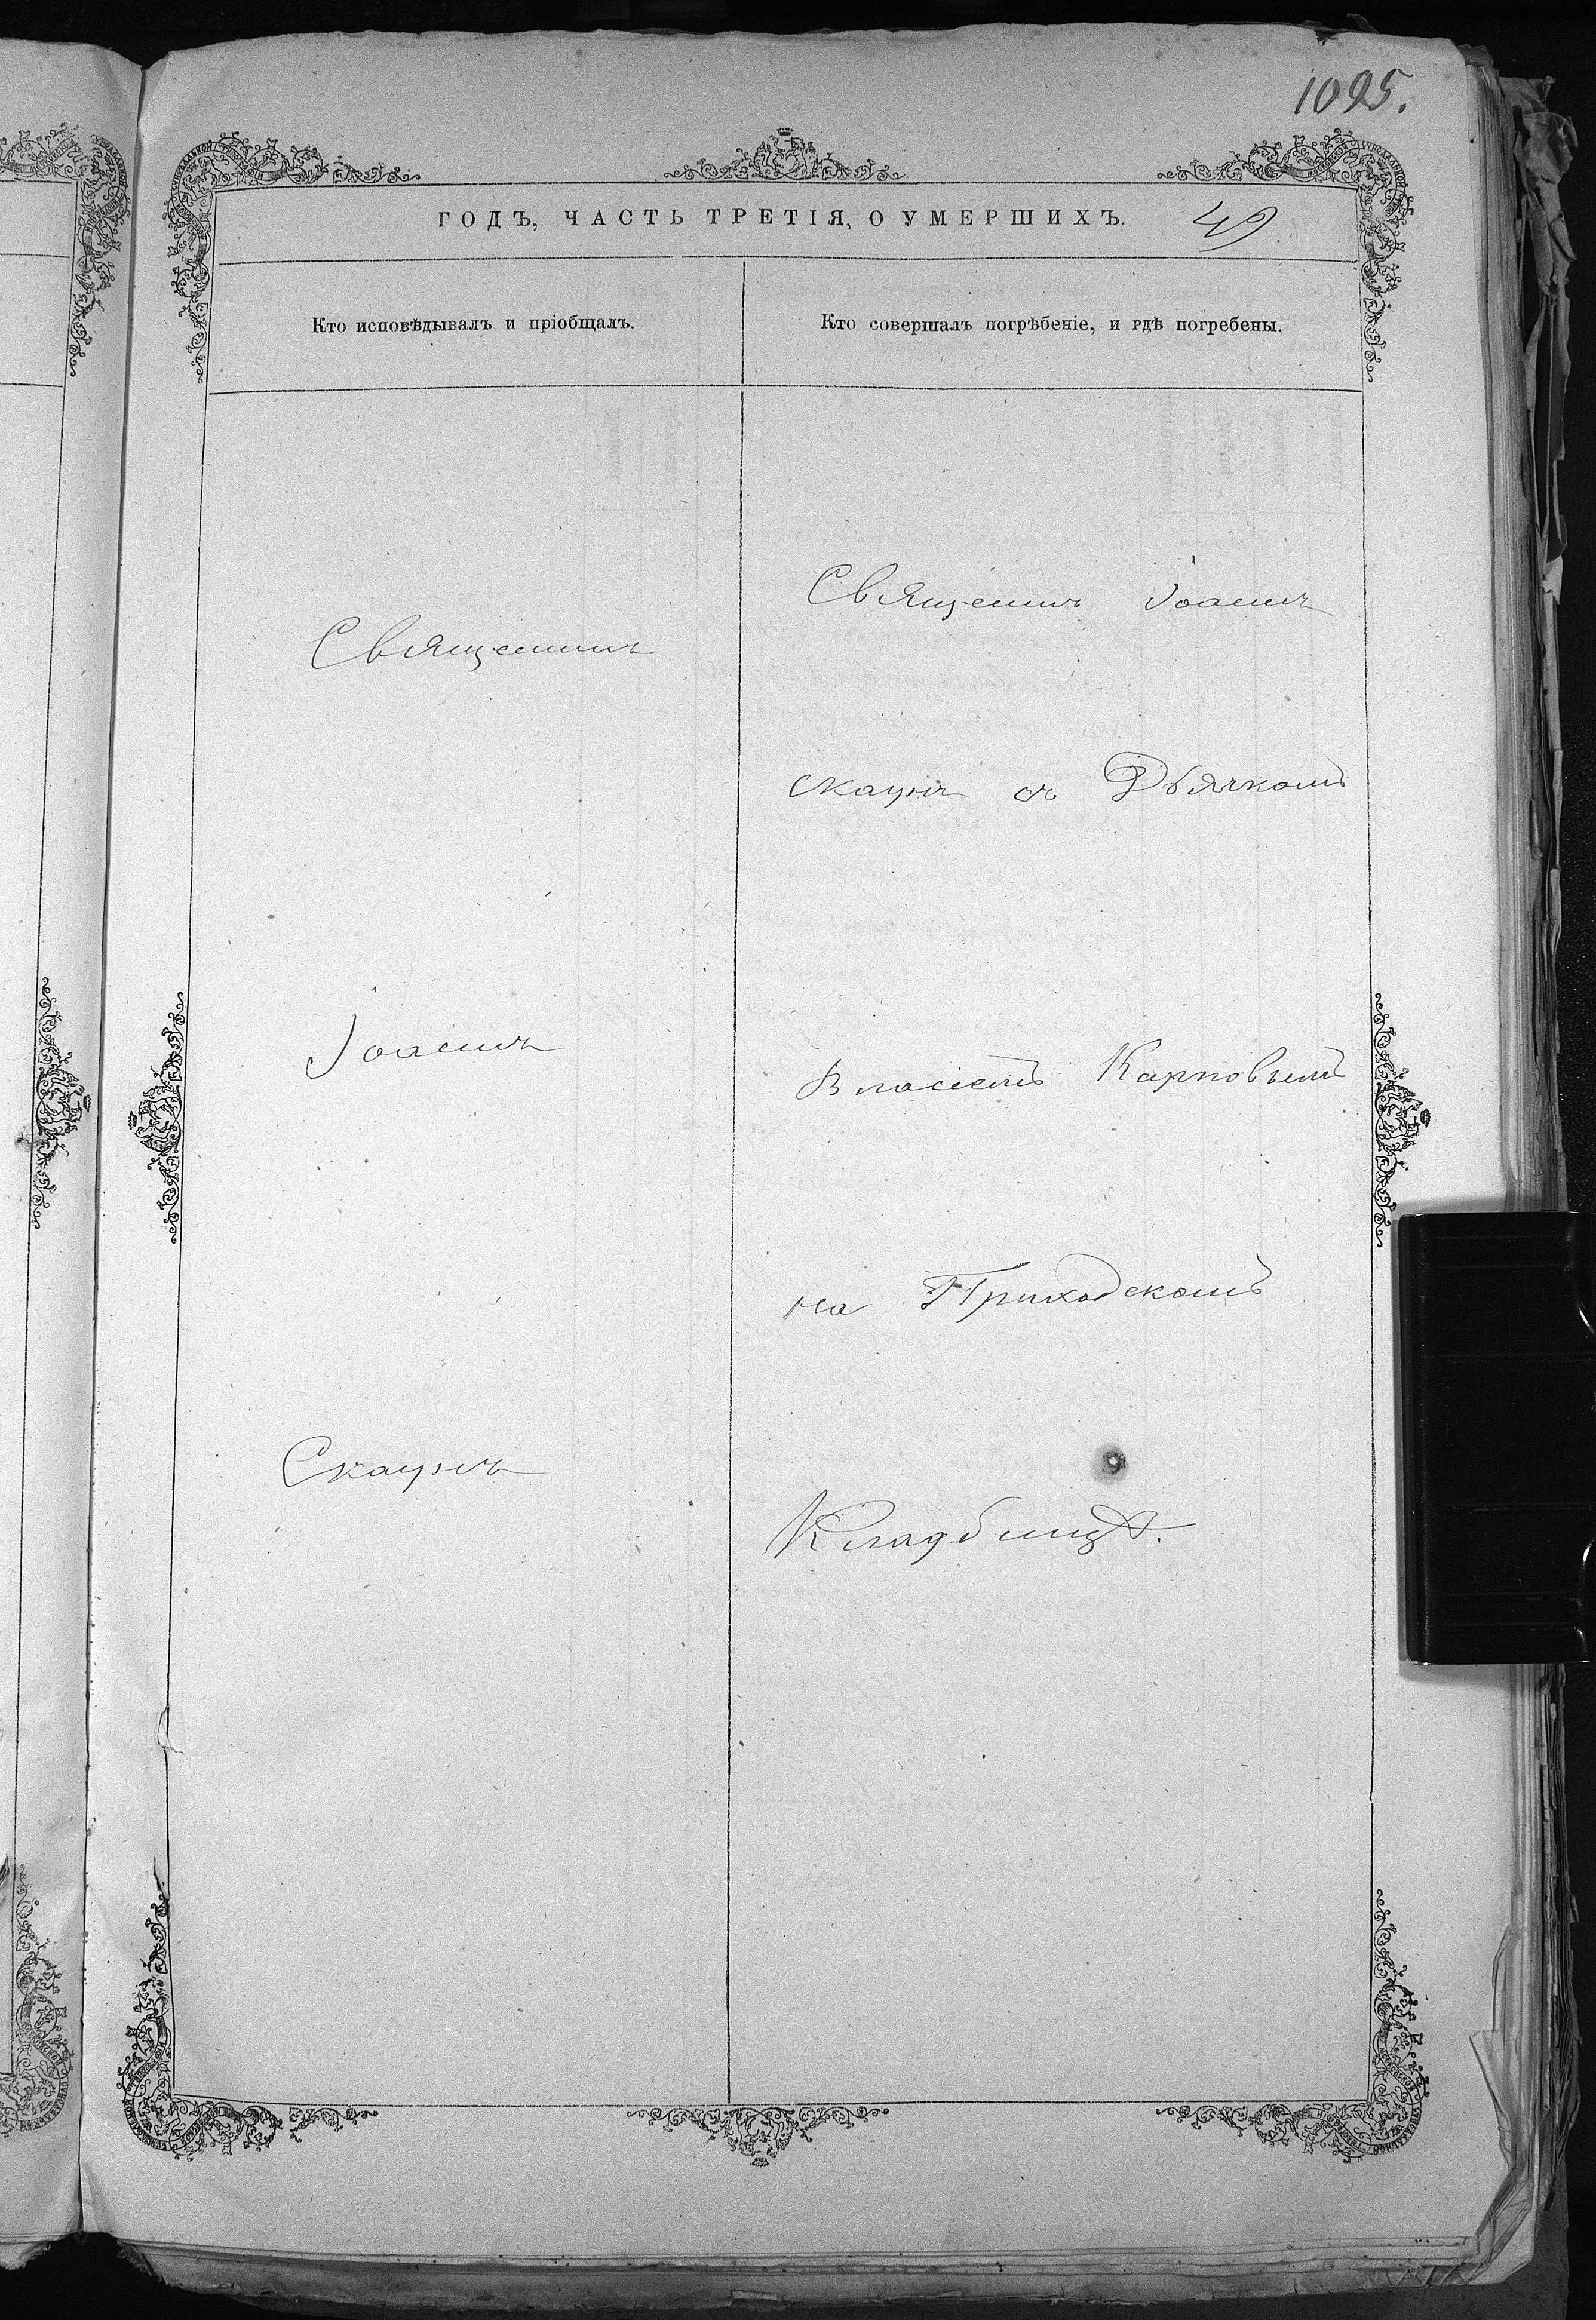 1095.
ГОДЪ, ЧАСТЬ ТРЕТІЯ, О УМЕРШИХЪ. 49
Кто исповѣдывалъ и пріобщалъ.
Священникъ
Іоаннъ
Скаунъ
Кто совершалъ погрѣбеніе, и гдѣ погребены.
Священникъ Іоаннъ
Скаунъ съ Дьячкомъ
Власіемъ Карповымъ
на Приходскомъ
Кладбищѣ.